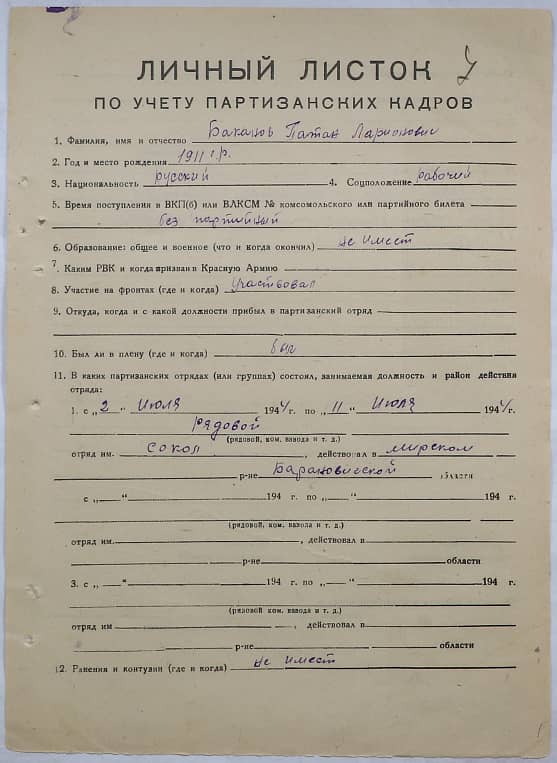 ЛИЧНЫЙ ЛИСТОК
ПО УЧЕТУ ПАРТИЗАНСКИХ КАДРОВ
1. Фамилия, имя и отчество Баканов Патан Ларионович
2. Год и место рождения 1911 г.р.
3. Национальность русский 4. Соцположение рабочий
5. Время поступления в ВКП(б) или ВЛКСМ № комсомольского или партийного билета
без партийный
6. Образование: общее и военное (что и когда окончил) не имеет
7. Каким РВК и когда призван в Красную Армию
8. Участие на фронтах (где и когда) участвовал
9. Откуда, когда и с какой должности прибыл в партизанский отряд
10. Был ли в плену (где и когда) был
11. В каких партизанских отрядах (или группах) состоял, занимаемая должность и район действия
отряда:
1. с „2“ Июля 1944 г. по „11“ Июля 1944 г.
Рядовой
(рядовой, ком. взвода и т. д.)
отряд им. Сокол, действовал в мирском
р-не Барановичской области
с „ “ 194 г. по „ “ 194 г.
(рядовой, ком. взвода и т. д.)
отряд им. , действовал в
р-не области
3. с „ “ 194 г. по „ “ 194 г.
(рядовой, ком. взвода и т. д.)
отряд им , действовал в
р-не области
12. Ранения и контузии (где и когда) не имеет